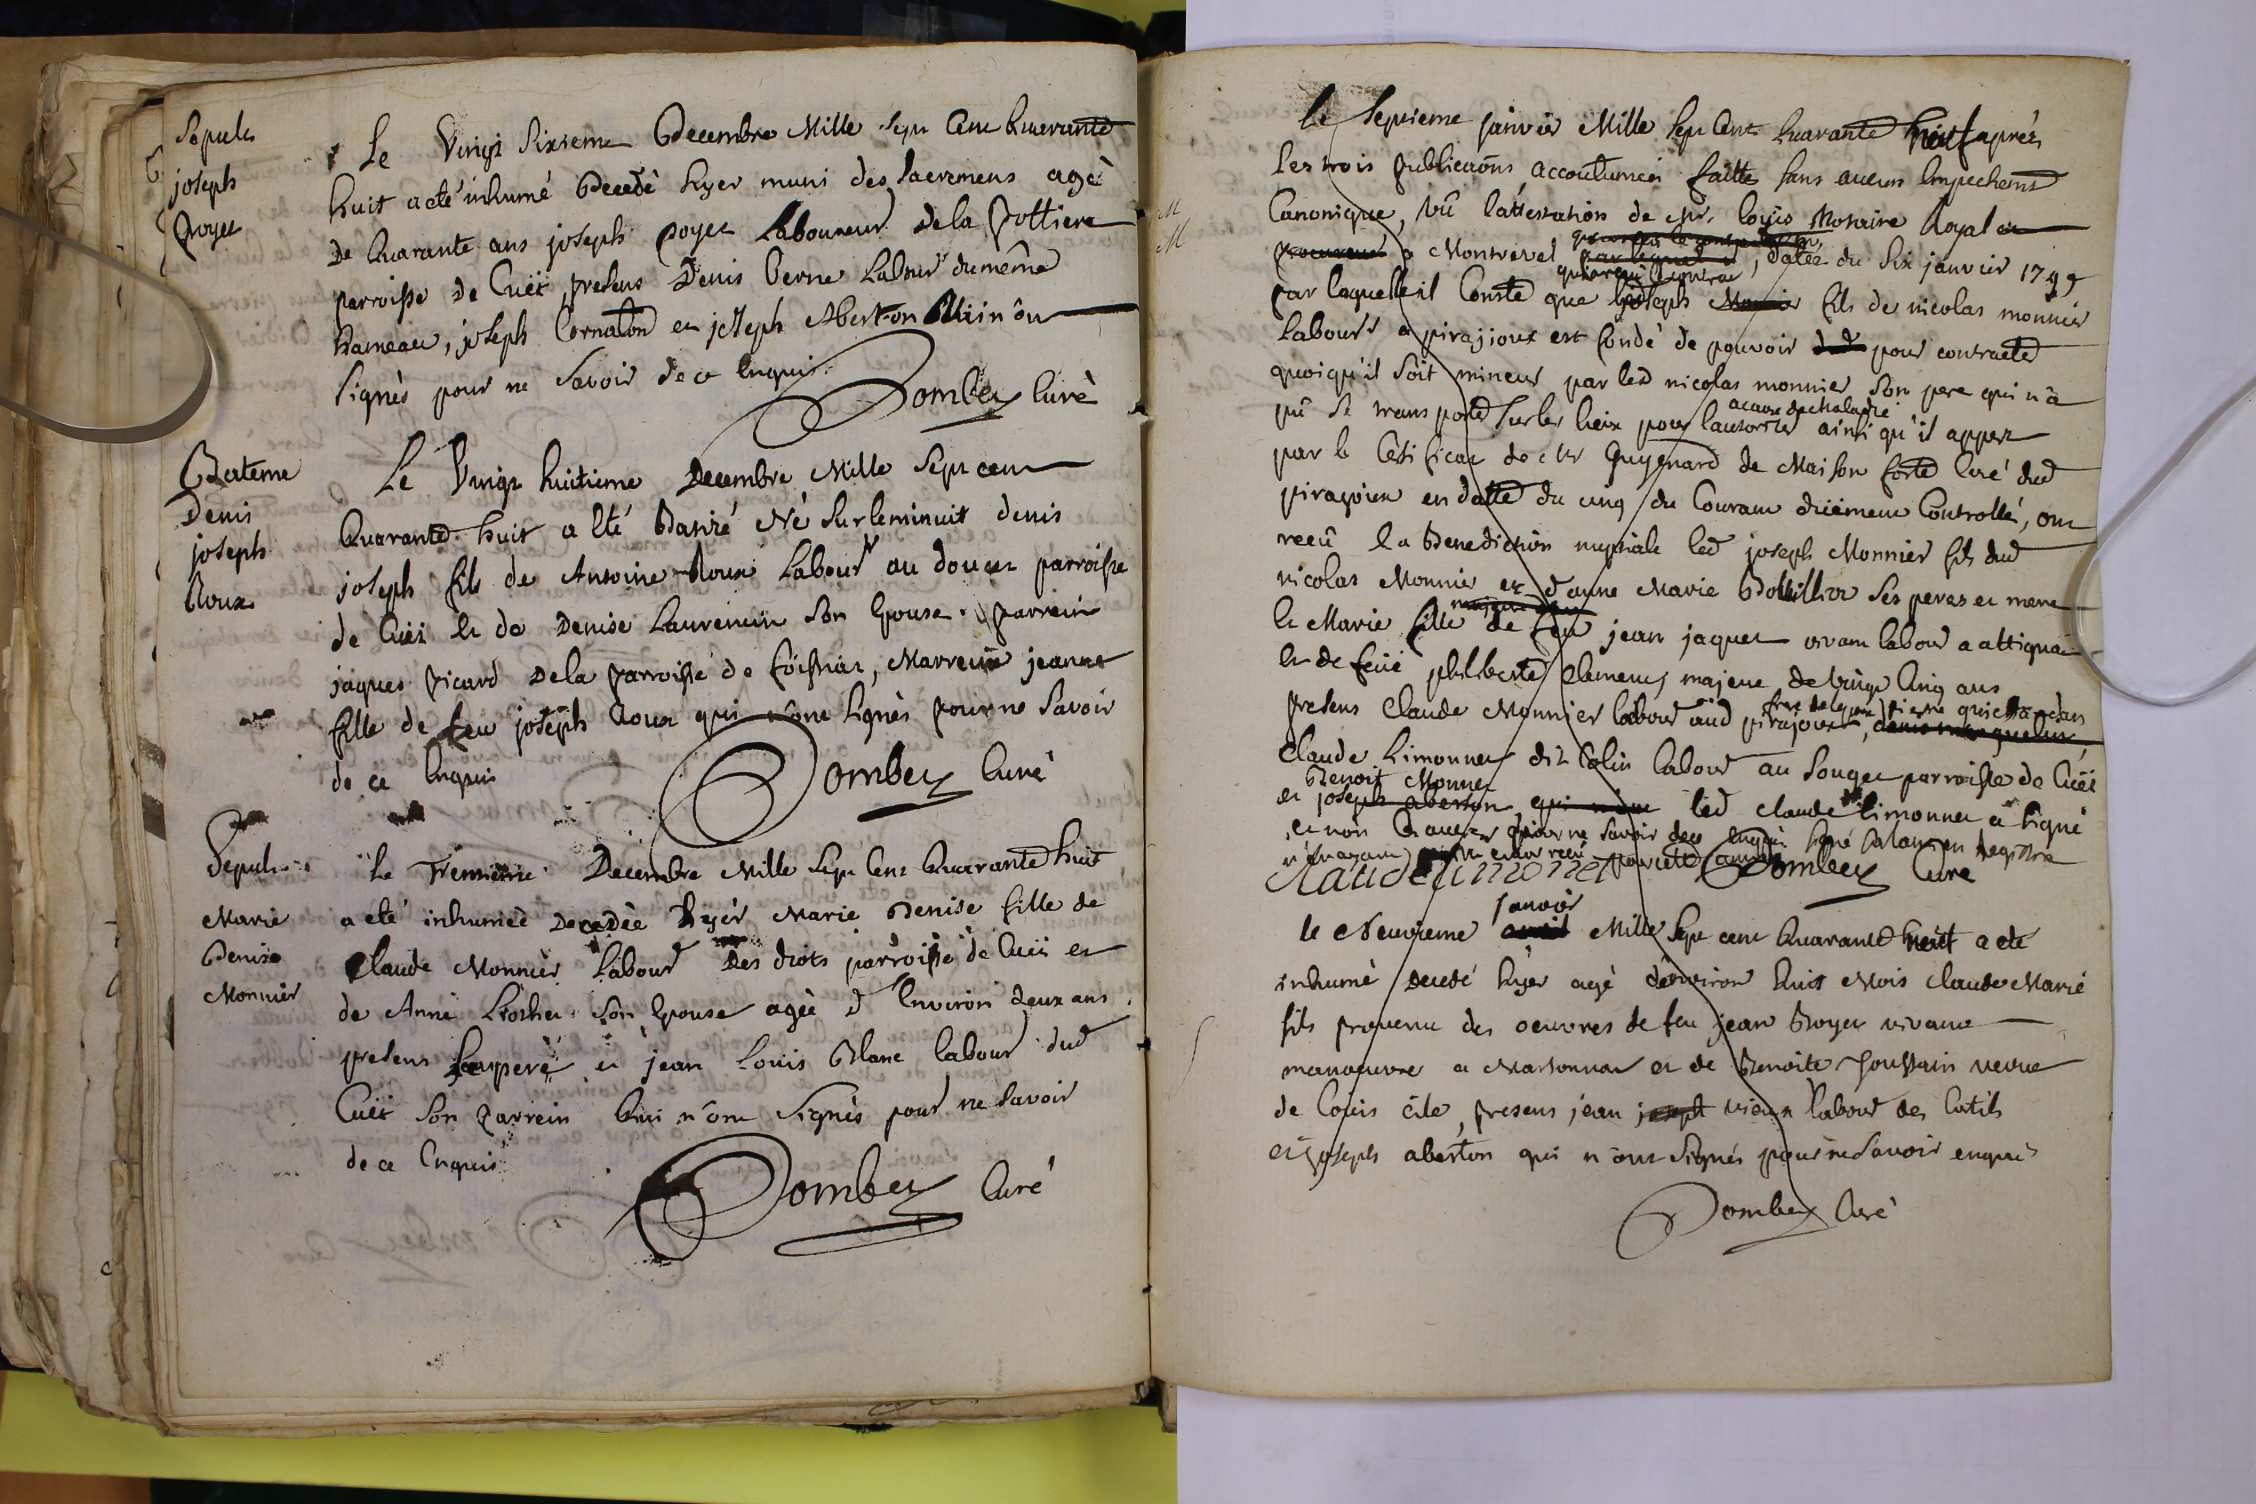 Sepult
joseph
poyet
Le Vingt Sixieme Decembre Mille Sept Cent Quarante
huit a eté inhumé Decedé hyer muni des Sacremens agè
De Quarante ans joseph poyet Laboureur dela pottiere
parroisse de Cuët, presens Denis Verne Labour du même
hameau, joseph Cornaton et joseph Aberton qui n'ont
Signès pour ne Savoir de ce Enquis
Dombey Curè
Bateme
Denis
joseph
Roux
Le Vingt huitieme Decembre Mille Sept cent
Quarante huit a Eté Batisé Né Sur le minuit denis
joseph fils de Antoine Roux Labour au doucet parroisse
de Cuët Et de Denise Laurencin Son Epouse. parrein
jaques picard De la parroisse de foissiat, Marreine jeanne
fille de feu joseph Roux qui n'ont Signès pour ne Savoir
de ce Enquis
Dombey Curè
Sepult
Marie
Denise
Monnier
Le Trentieme Decembre Mille Sept Cent Quarante huit
a eté inhumeè Decedèe hyer Marie Denise fille de
Claude Monnier Labour Des droits parroisse de Cuët et
de Anne Brochet Son Epouse agèe d'Environ deux ans
presens Le pere et jean Louis Blanc labour dud
Cuët Son parrein Qui n'ont Signès pour ne Savoir
de ce Enquis
Dombey Curé
Le Septieme janvier Mille Sept Cent Quarante neuf après
Les trois publicaõns accoutumées faitte Sans aucun Empechemt
Canonique, vû l'attestation de Mr. Notaire Royal et
procureur a Montrevel, datée du Six janvier 1749
par laquelle il Conste que joseph Monnier fils de nicolas monnier
Labour a pirajioux est fondé de pouvoir pour contracter
quoiqu'il Soit mineur par led nicolas monnier Son pere qui n'a
pû Se transporter Sur les lieux pour l'autoriser a cause de Maladie ainsi qu'il appert
par le Certificat de Mr Guyenard de Maison forte Curé dud
pirajoux en datte du cinq du Courant düement Controllé, ont
recû la Benediction nuptiale led joseph Monnier fils dud
nicolas Monnier et d'anne Marie Ses peres et mere
Et Marie fille de feu jean jaquet vivant labour a attignat
Et de feüe philiberte Clement, majeure de Vingt Cinq ans
presens Claude Monnier labour aud pirajoux,
Claude Limonnet dit Colin labour au Souget parroisse de Cuët
Benoit Monnet
et joseph aberton, qui n'ont led Claude Limonnet a Signé
et non Les autres pour ne Savoir de ce Enquis
Claude Limonet
Dombey Curé
le Neuvieme avril janvier Mille Sept cent Quarante neuf a eté
inhumé Decedé hyer agé d'environ huit Mois Claude Marie
fils provenu des oeuvres de feu jean Broyer vivant
manoeuvre a Marsonnas et de Benoite Joussain veuve
de Louis, presens jean joseph vieux labour des Cutils
et joseph aberton qui n'ont Signés pour ne Savoir enquis
Dombey Curé